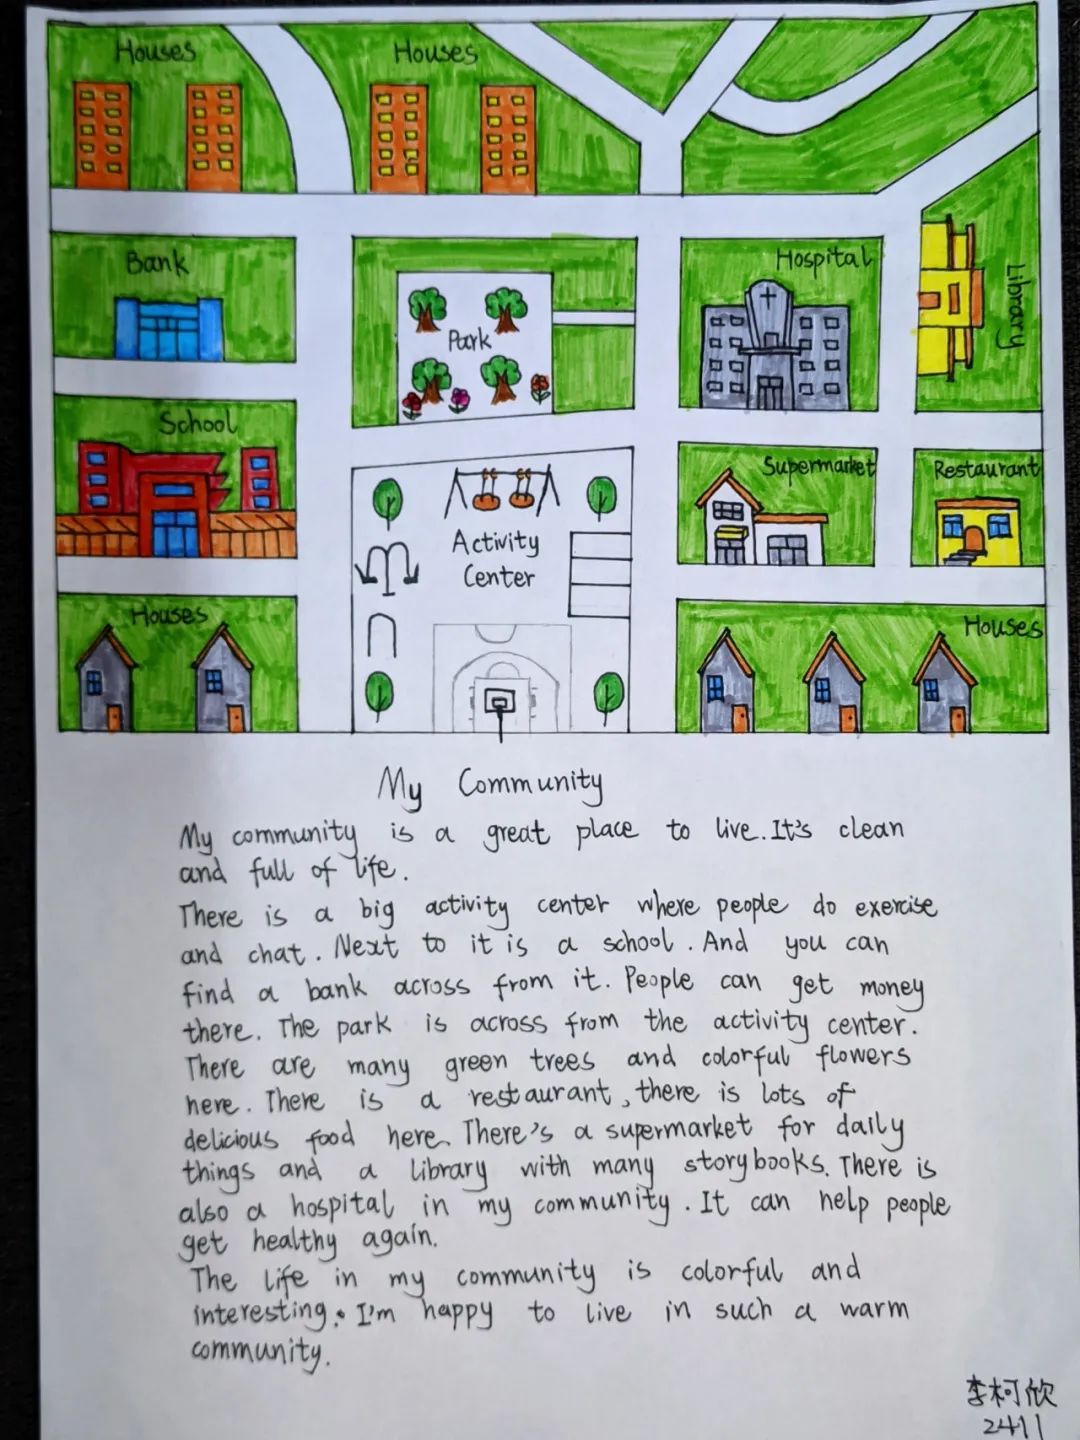 Houses
Houses
Bank
Park
Hospital
Library
School
Supermarket
Restaurant
Activity
Center
Houses
Houses
My Community
My community is a great place to live. It's clean
and full of life.
There is a big activity center where people do exercise
and chat. Next to it is a school. And you can
find a bank across from it. People can get money
there. The park is across from the activity center.
There are many green trees and colorful flowers
here. There is a restaurant, there is lots of
delicious food here. There's a supermarket for daily
things and a library with many storybooks. There is
also a hospital in my community. It can help people
get healthy again.
The life in my community is colorful and
interesting. I'm happy to live in such a warm
community.
李柯欣
2411